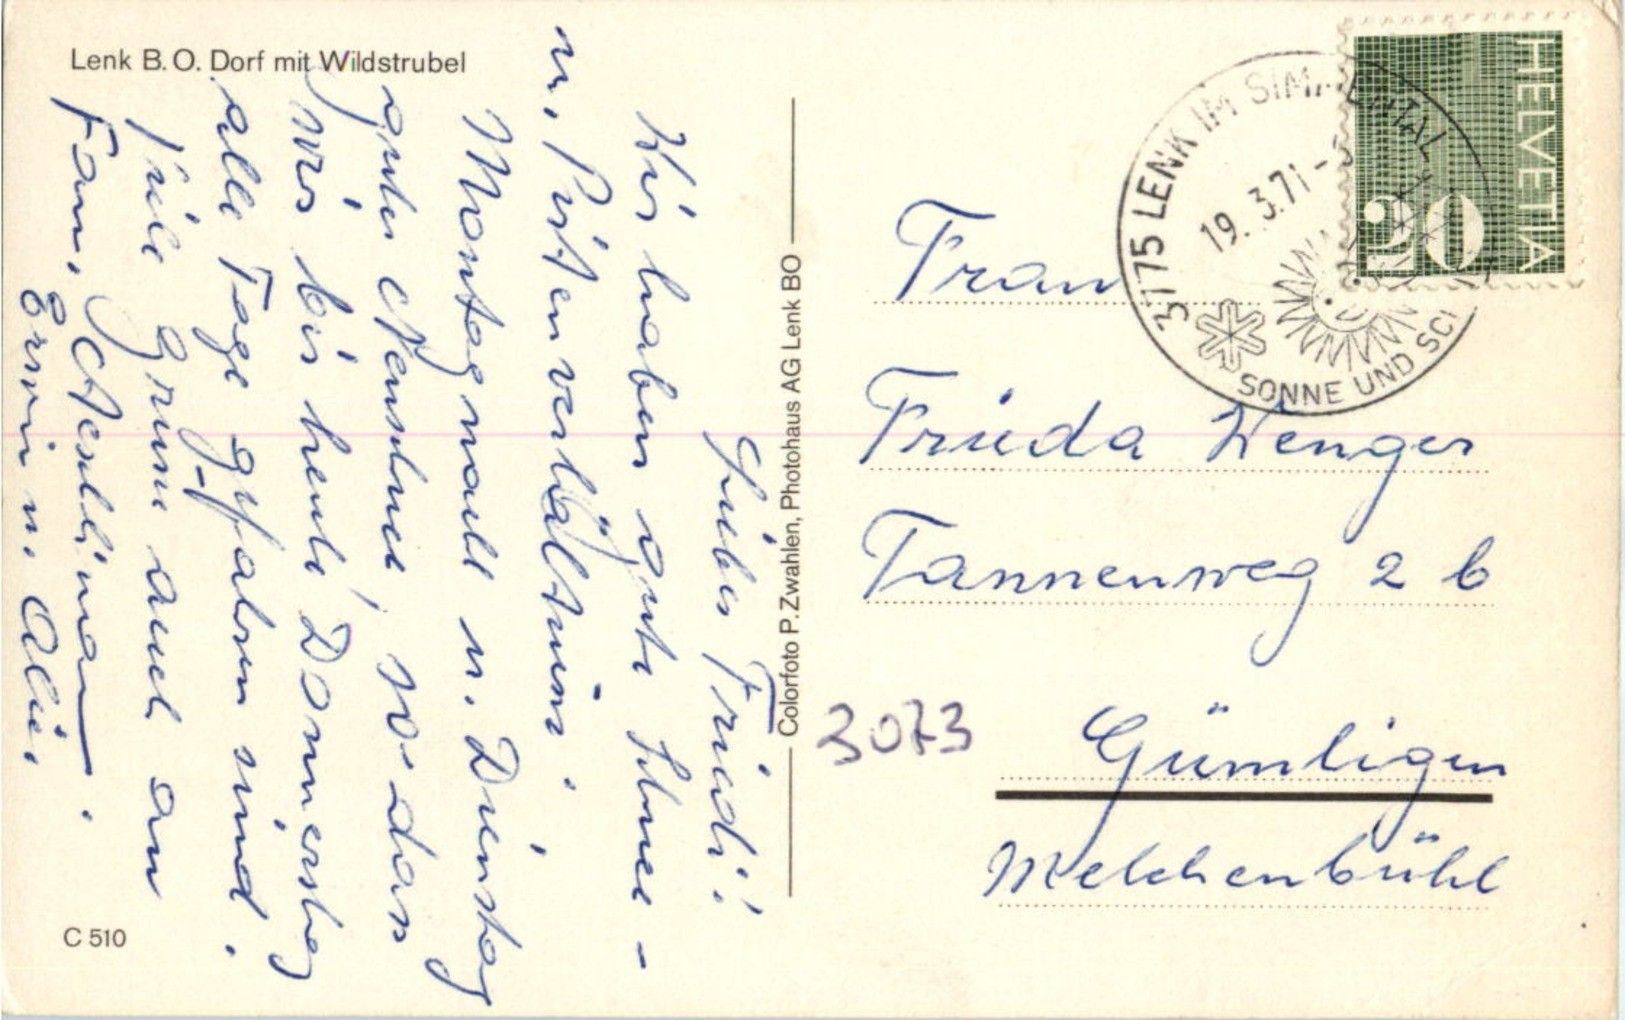 Lenk B.O. Dorf mit Wildstrubel
Liebes Friedi!
Wir haben gute Schnee-
u. Pistenverhältnisse.
Montagnacht u. Dienstag
guter Neuschnee, so dass
wir bis heute Donnerstag
alle Tage gefahren sind.
Viele Grüsse auch an
Fam. Aeschlimann.
Erwin u. Alice
C 510
Colorfoto P. Zwahlen, Photohaus AG Lenk BO
3775 LENK IM SIMMENTAL
19.3.71-
SONNE UND SCH
HELVETIA
20
Frau
Frieda Wenger
Tannenweg 2 b
3073 Gümligen
Melchenbühl